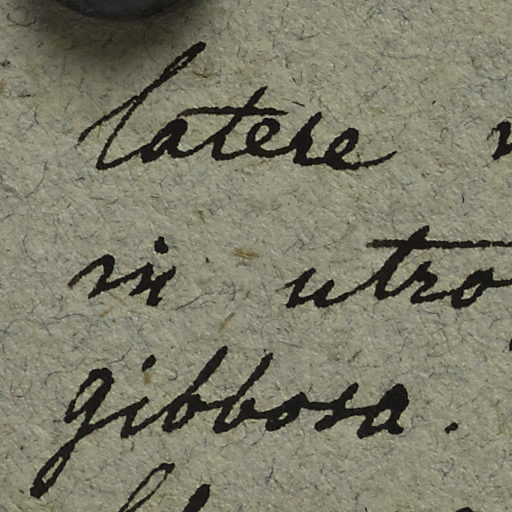 latere
vix utro
gibbosa.